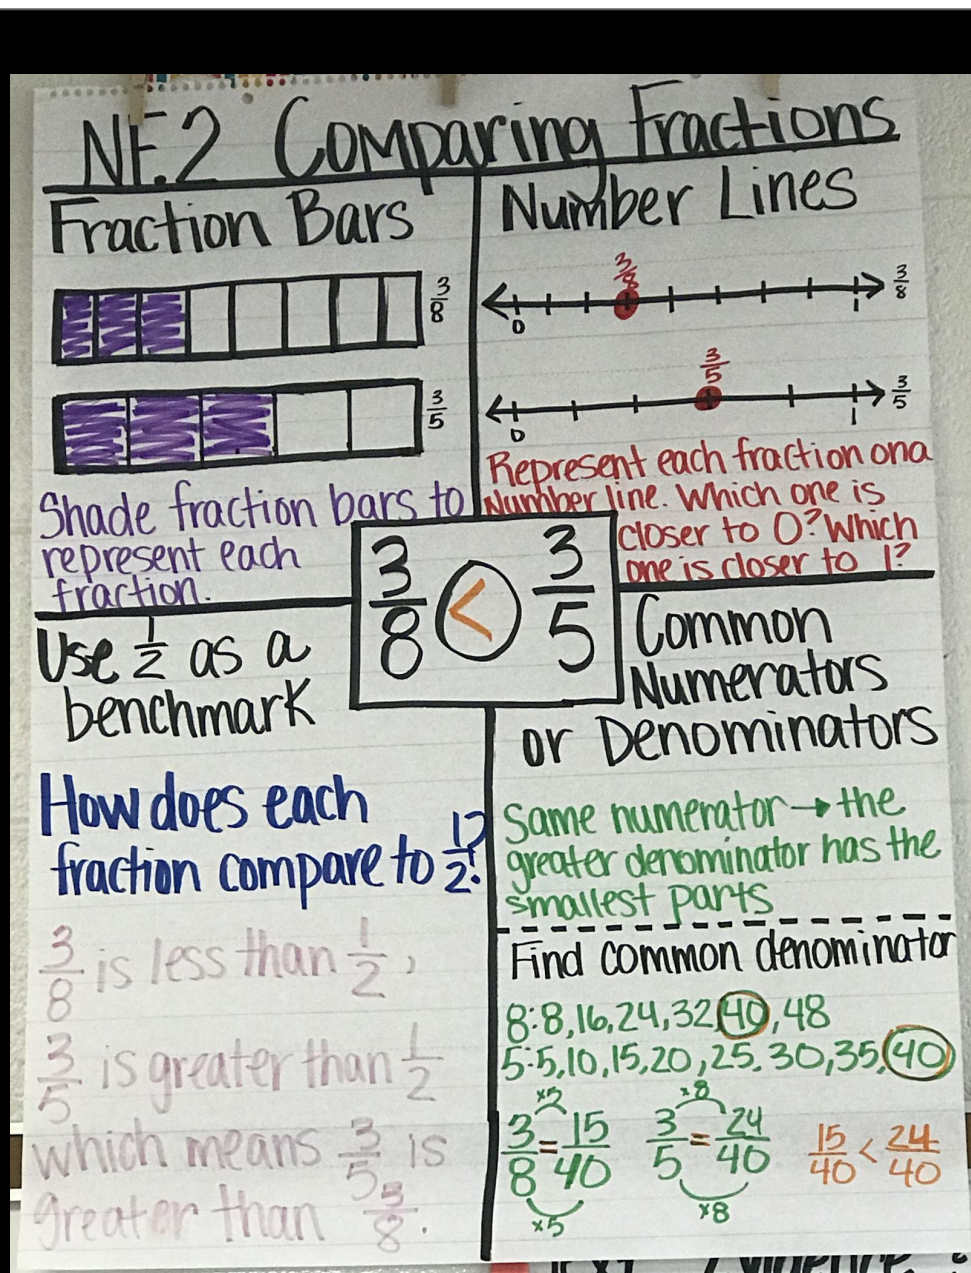 NF.2 Comparing Fractions
Fraction Bars
3/8
3/5
Shade fraction bars to
represent each
fraction.
Number Lines
3/8
0
1
3/8
3/5
0
1
3/5
Represent each fraction on a
Number line. Which one is
closer to 0? Which
one is closer to 1?
3/8 < 3/5
Use 1/2 as a
benchmark
How does each
fraction compare to 1/2?
3/8 is less than 1/2,
3/5 is greater than 1/2
which means 3/5 is
greater than 3/8.
Common
Numerators
or Denominators
Same numerator → the
greater denominator has the
smallest parts
Find common denominator
8: 8, 16, 24, 32, 40, 48
5: 5, 10, 15, 20, 25, 30, 35, 40
×5 ×8
3/8 = 15/40 3/5 = 24/40 15/40 < 24/40
×5 ×8